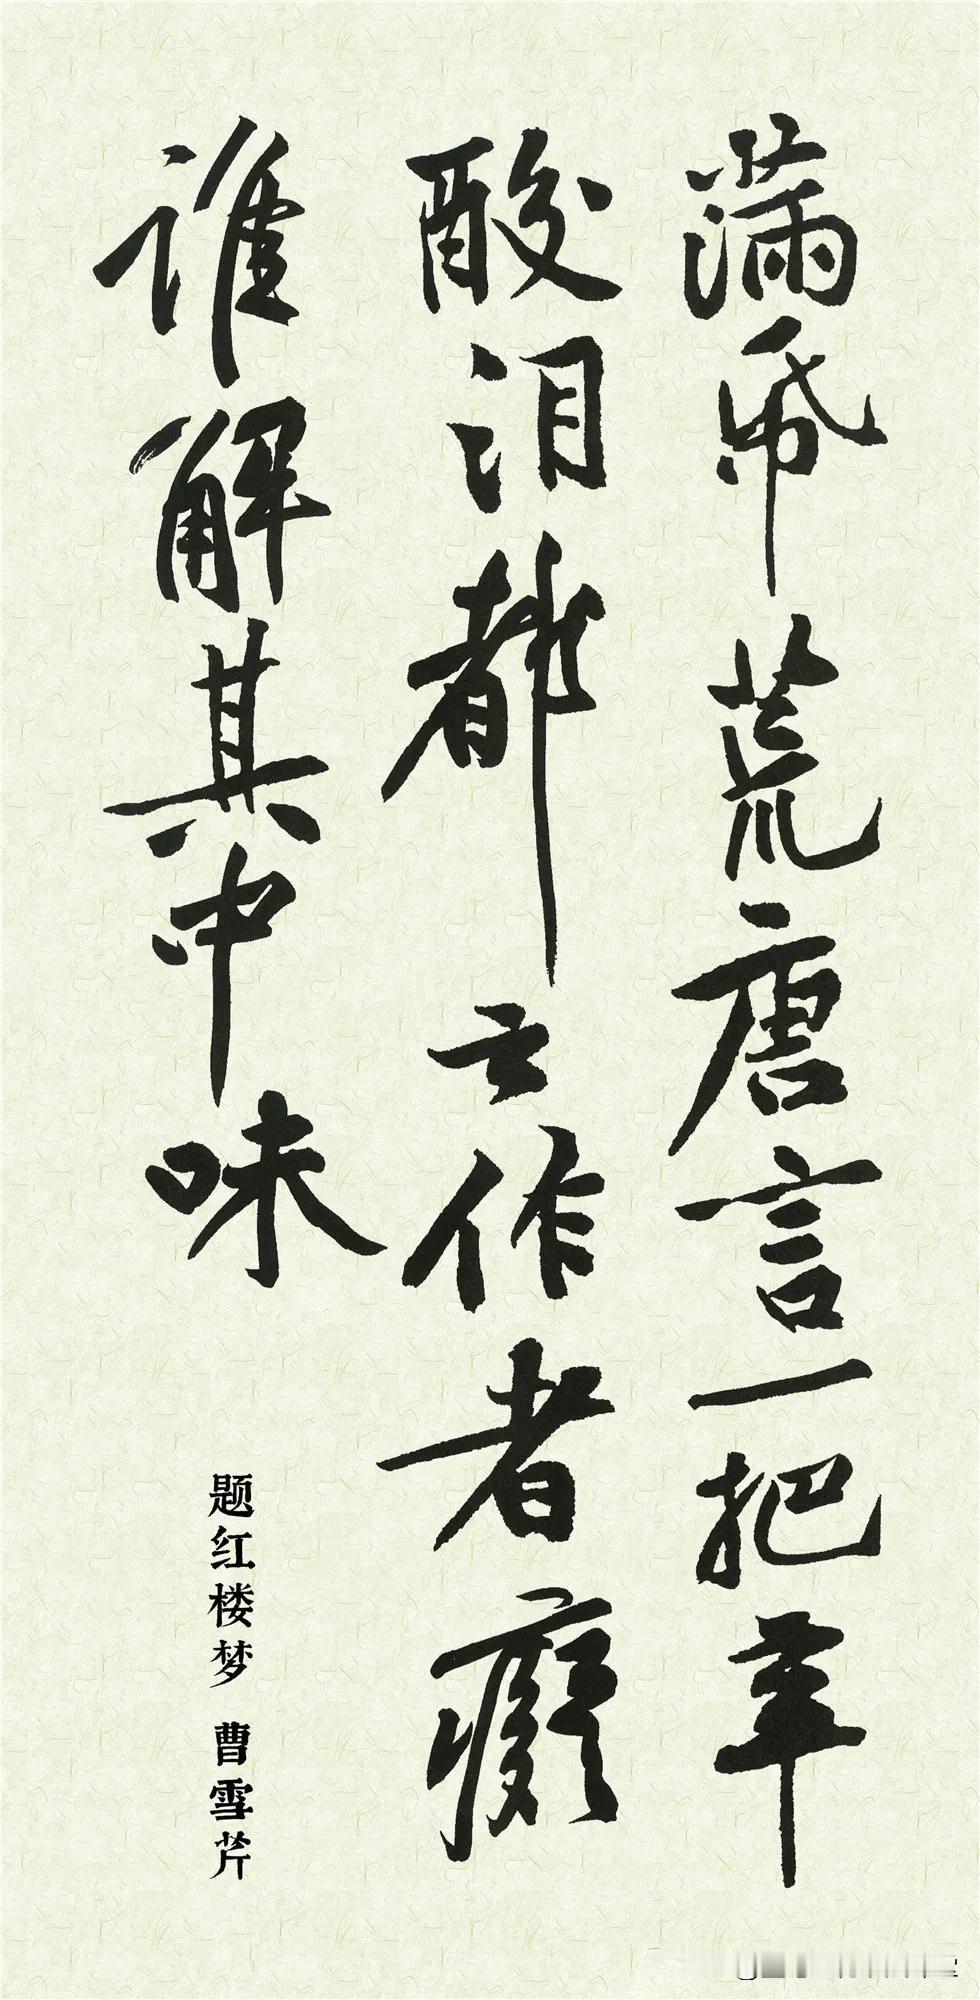 满帋荒唐言一把辛
酸泪都云作者癡
谁解其中味
题红楼梦 曹雪芹